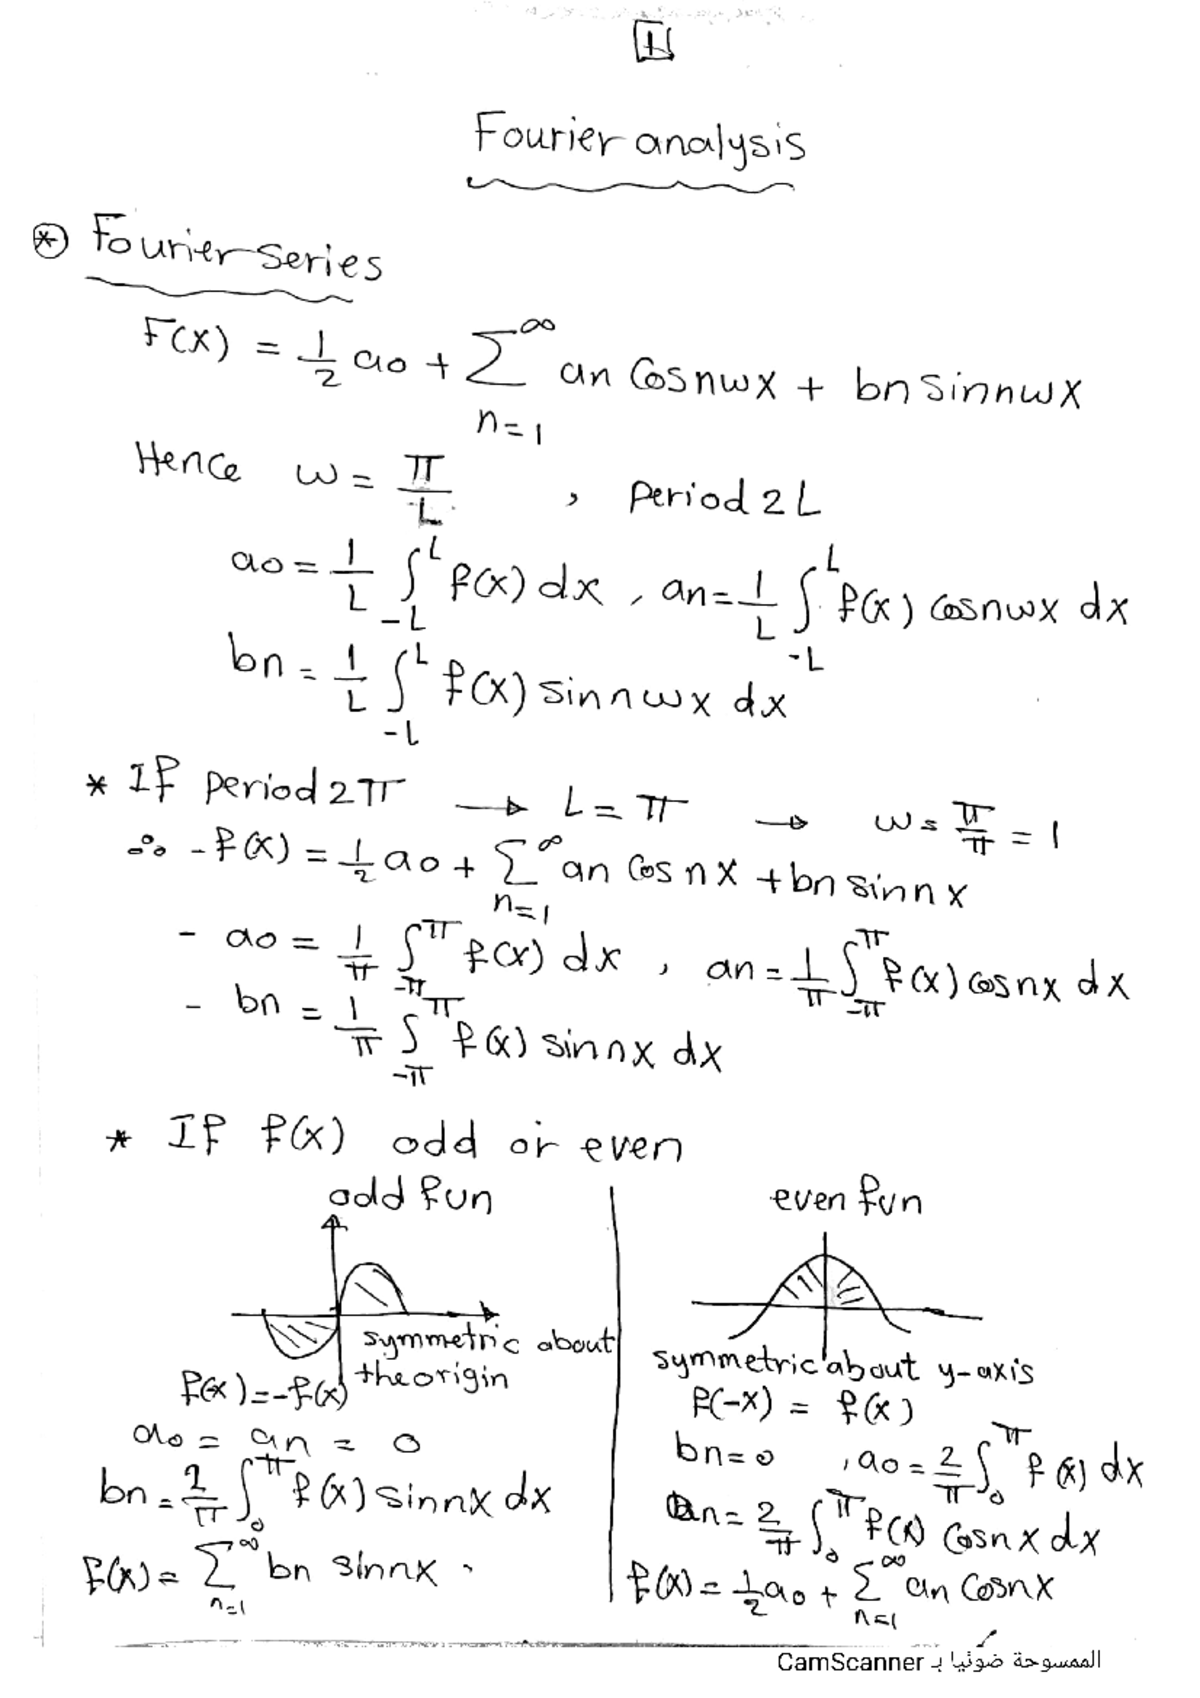 1
Fourier analysis
⊛ Fourier series
F(x) = 1/2 a0 + ∑_{n=1}^{∞} an Cos nwx + bn sin nwx
Hence w = π/L , Period 2L
a0 = 1/L ∫_{-L}^{L} f(x) dx , an = 1/L ∫_{-L}^{L} f(x) cos nwx dx
bn = 1/L ∫_{-L}^{L} f(x) sin nwx dx
* IF period 2π → L = π → w = π/π = 1
∴ - f(x) = 1/2 a0 + ∑_{n=1}^{∞} an Cos nx + bn sin nx
- a0 = 1/π ∫_{-π}^{π} f(x) dx , an = 1/π ∫_{-π}^{π} f(x) cos nx dx
- bn = 1/π ∫_{-π}^{π} f(x) sin nx dx
* IF f(x) odd or even
odd fun
symmetric about
the origin
f(x) = -f(x)
a0 = an = 0
bn = 2/π ∫_{0}^{π} f(x) sin nx dx
f(x) = ∑_{n=1}^{∞} bn sin nx .
even fun
symmetric about y-axis
f(-x) = f(x)
bn = 0 , a0 = 2/π ∫_{0}^{π} f(x) dx
an = 2/π ∫_{0}^{π} f(x) cos nx dx
f(x) = 1/2 a0 + ∑_{n=1}^{∞} an Cos nx
الممسوحة ضوئيا بـ CamScanner